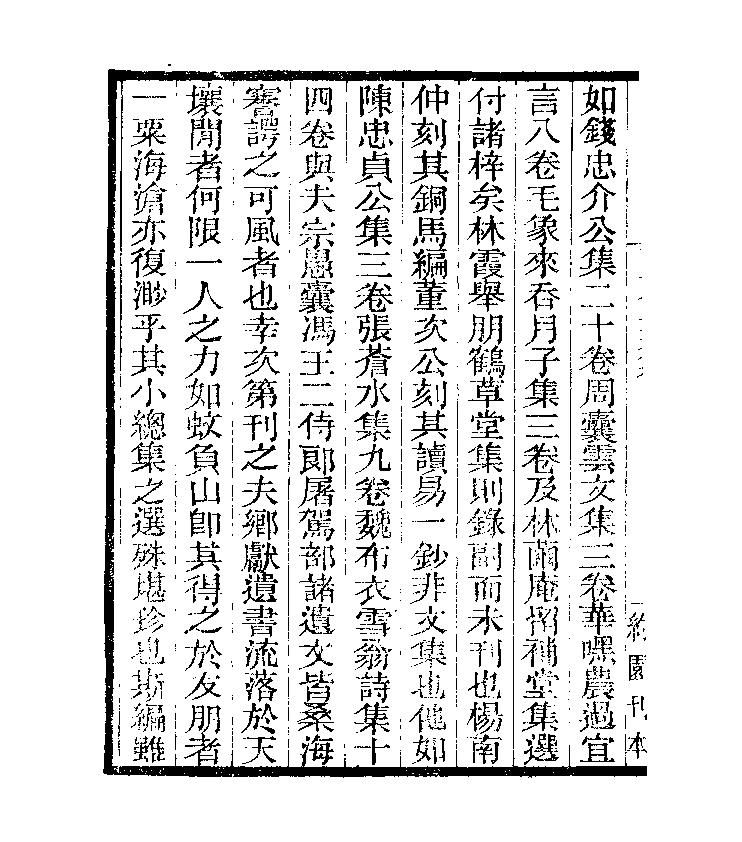 如錢忠介公集二十卷周囊雲文集三卷華嘿農過宜
言八卷毛象來吞月子集三卷及林菌庵招補堂集選
付諸梓矣林霞舉朋鶴草堂集則錄副而未刊也楊南
仲刻其銅馬編董次公刻其讀易一鈔非文集也他如
陳忠貞公集三卷張蒼水集九卷魏布衣雪翁詩集十
四卷與夫宗愚囊馮王二侍郎屠駕部諸遺文皆桑海
謇諤之可風者也幸次第刊之夫鄉獻遺書流落於天
壤閒者何限一人之力如蚊負山卽其得之於友朋者
一粟海滄亦復渺乎其小總集之選殊堪珍也斯編雖
約園刊本